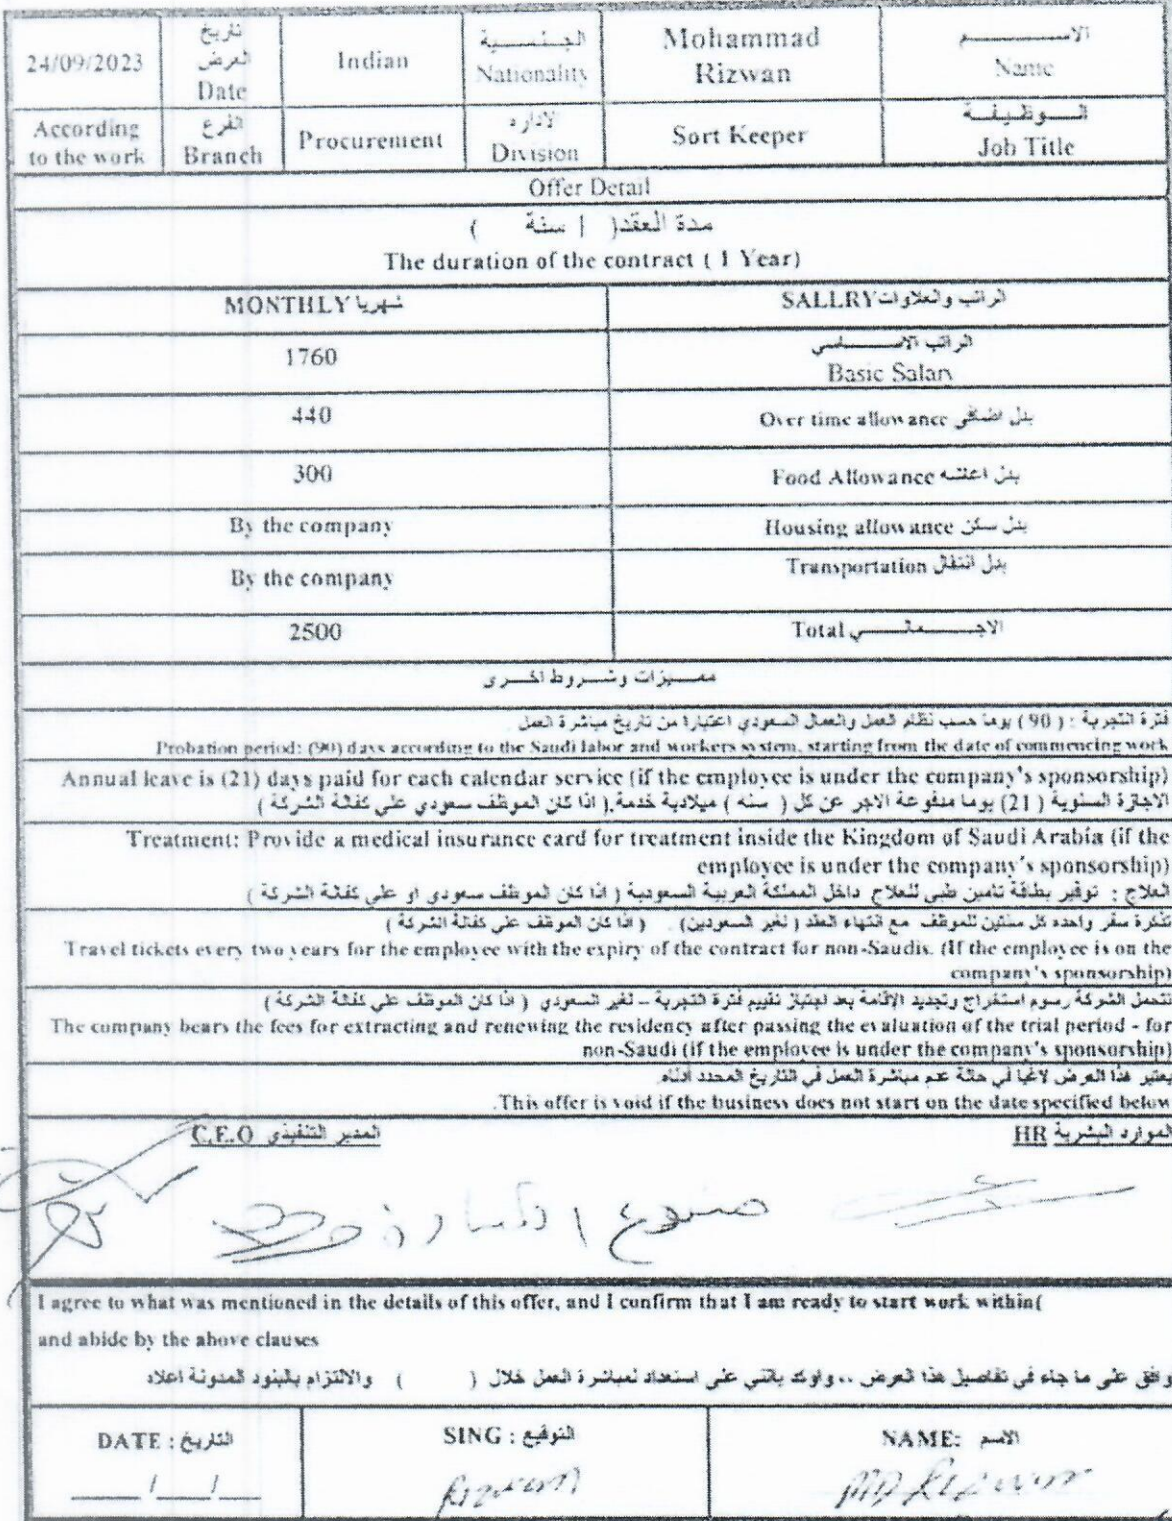 24/09/2023 تاريخ العرض Date Indian الجنسية Nationality Mohammad Rizwan الاسم Name
According to the work الفرع Branch Procurement الاداره Division Sort Keeper الوظيفة Job Title
Offer Detail
مدة العقد( ١ سنة )
The duration of the contract ( 1 Year)
MONTHLY شهريا الراتب والعلاوات SALLRY
1760 الراتب الاساسي
Basic Salary
440 Over time allowance بدل اضافي
300 Food Allowance بدل اعاشه
By the company Housing allowance بدل سكن
By the company Transportation بدل انتقال
2500 Total الاجمالي
مميزات وشروط اخرى
فترة التجربة : ( 90 ) يوما حسب نظام العمل والعمال السعودي اعتبارا من تاريخ مباشرة العمل .
Probation period: (90) days according to the Saudi labor and workers system, starting from the date of commencing work
Annual leave is (21) days paid for each calendar service (if the employee is under the company's sponsorship)
الاجازة السنوية ( 21) يوما مدفوعة الاجر عن كل ( سنه ) ميلادية خدمة.( اذا كان الموظف سعودي علي كفالة الشركة )
Treatment: Provide a medical insurance card for treatment inside the Kingdom of Saudi Arabia (if the
employee is under the company's sponsorship)
العلاج : توفير بطاقة تامين طبي للعلاج داخل المملكة العربية السعودية ( اذا كان الموظف سعودي او علي كفالة الشركة )
تذكرة سفر واحده كل سنتين للموظف مع انتهاء العقد ( لغير السعودين) . ( اذا كان الموظف على كفالة الشركة )
Travel tickets every two years for the employee with the expiry of the contract for non-Saudis. (If the employee is on the
company's sponsorship)
تتحمل الشركة رسوم استخراج وتجديد الإقامة بعد اجتياز تقييم فترة التجربة – لغير السعودي ( اذا كان الموظف علي كفالة الشركة )
The company bears the fees for extracting and renewing the residency after passing the evaluation of the trial period - for
non-Saudi (if the employee is under the company's sponsorship)
يعتبر هذا العرض لاغيا في حالة عدم مباشرة العمل في التاريخ المحدد أدناه.
.This offer is void if the business does not start on the date specified below
المدير التنفيذي C.E.O الموارد البشرية HR
I agree to what was mentioned in the details of this offer, and I confirm that I am ready to start work within(
and abide by the above clauses
وافق على ما جاء في تفاصيل هذا العرض .. واوكد بانني على استعداد لمباشرة العمل خلال ( ) والالتزام بالبنود المدونة اعلاه
DATE : التاريخ SING : التوقيع NAME: الاسم
___/___/___ Rizwan MD Rizwan